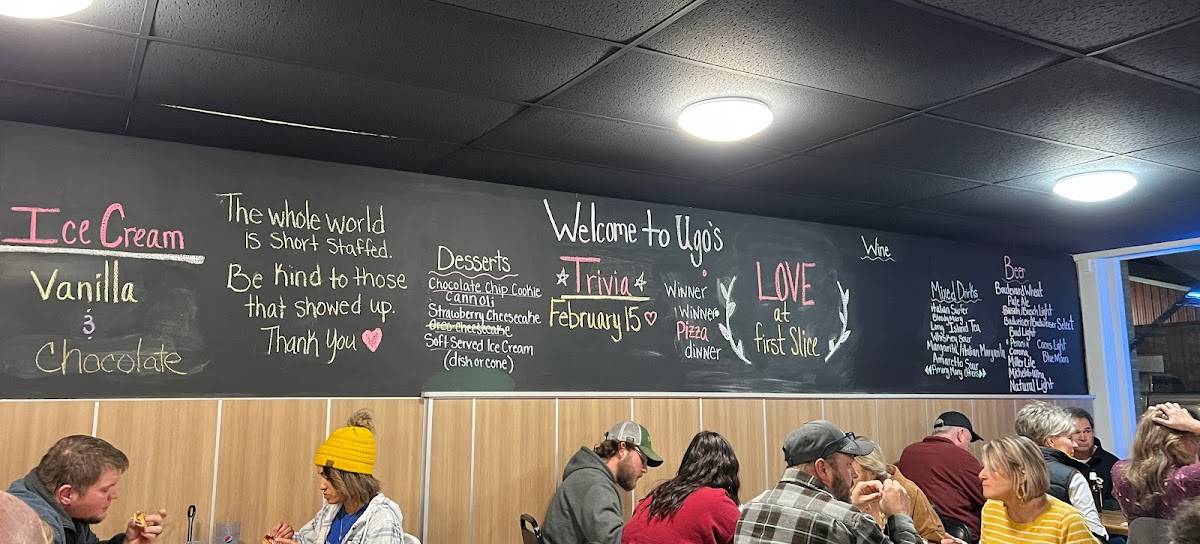 Ice Cream
Vanilla
&
Chocolate
The whole world
is short staffed.
Be kind to those
that showed up.
Thank you
Desserts
Chocolate Chip Cookie
Cannoli
Strawberry Cheesecake
Oreo cheesecake
Soft Served Ice Cream
(dish or cone)
Welcome to Ugo's
Trivia
February 15
Winner
Winner
Pizza
dinner
LOVE
at
first Slice
Wine
Mixed Drinks
Italian Surfer
Bloody Mary
Long Island Tea
Whiskey Sour
Margarita, Italian Margarita
Amaretto Sour
Among Many Others
Beer
Boulevard Wheat
Pale Ale
Busch/Busch Light
Budweiser/Budweiser Select
Bud Light
Peroni
Corona
Miller Lite
Michelob Ultra
Natural Light
Coors Light
Blue Moon